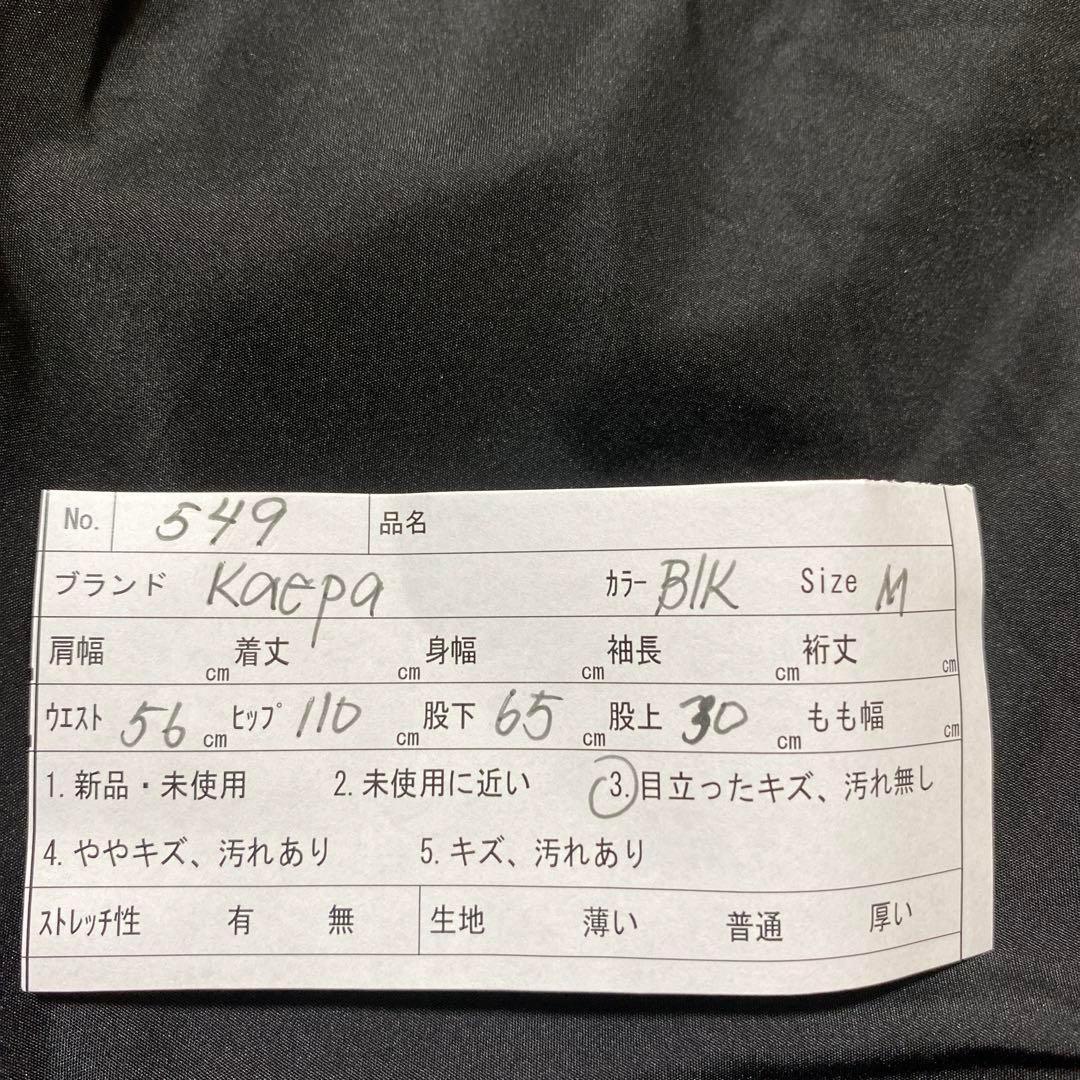 No. 549 品名
ブランド Kaepa ｶﾗｰ BlK Size M
肩幅 cm 着丈 cm 身幅 cm 袖長 cm 裄丈 cm
ｳｴｽﾄ 56 cm ﾋｯﾌﾟ 110 cm 股下 65 cm 股上 30 cm もも幅 cm
1. 新品・未使用 2. 未使用に近い 3. 目立ったキズ、汚れ無し
4. ややキズ、汚れあり 5. キズ、汚れあり
ｽﾄﾚｯﾁ性 有 無 生地 薄い 普通 厚い